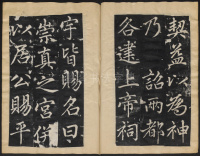 契益以為神
乃詔兩都
各建上帝祠
宇皆賜名曰
崇真之宮俾
以居公賜平